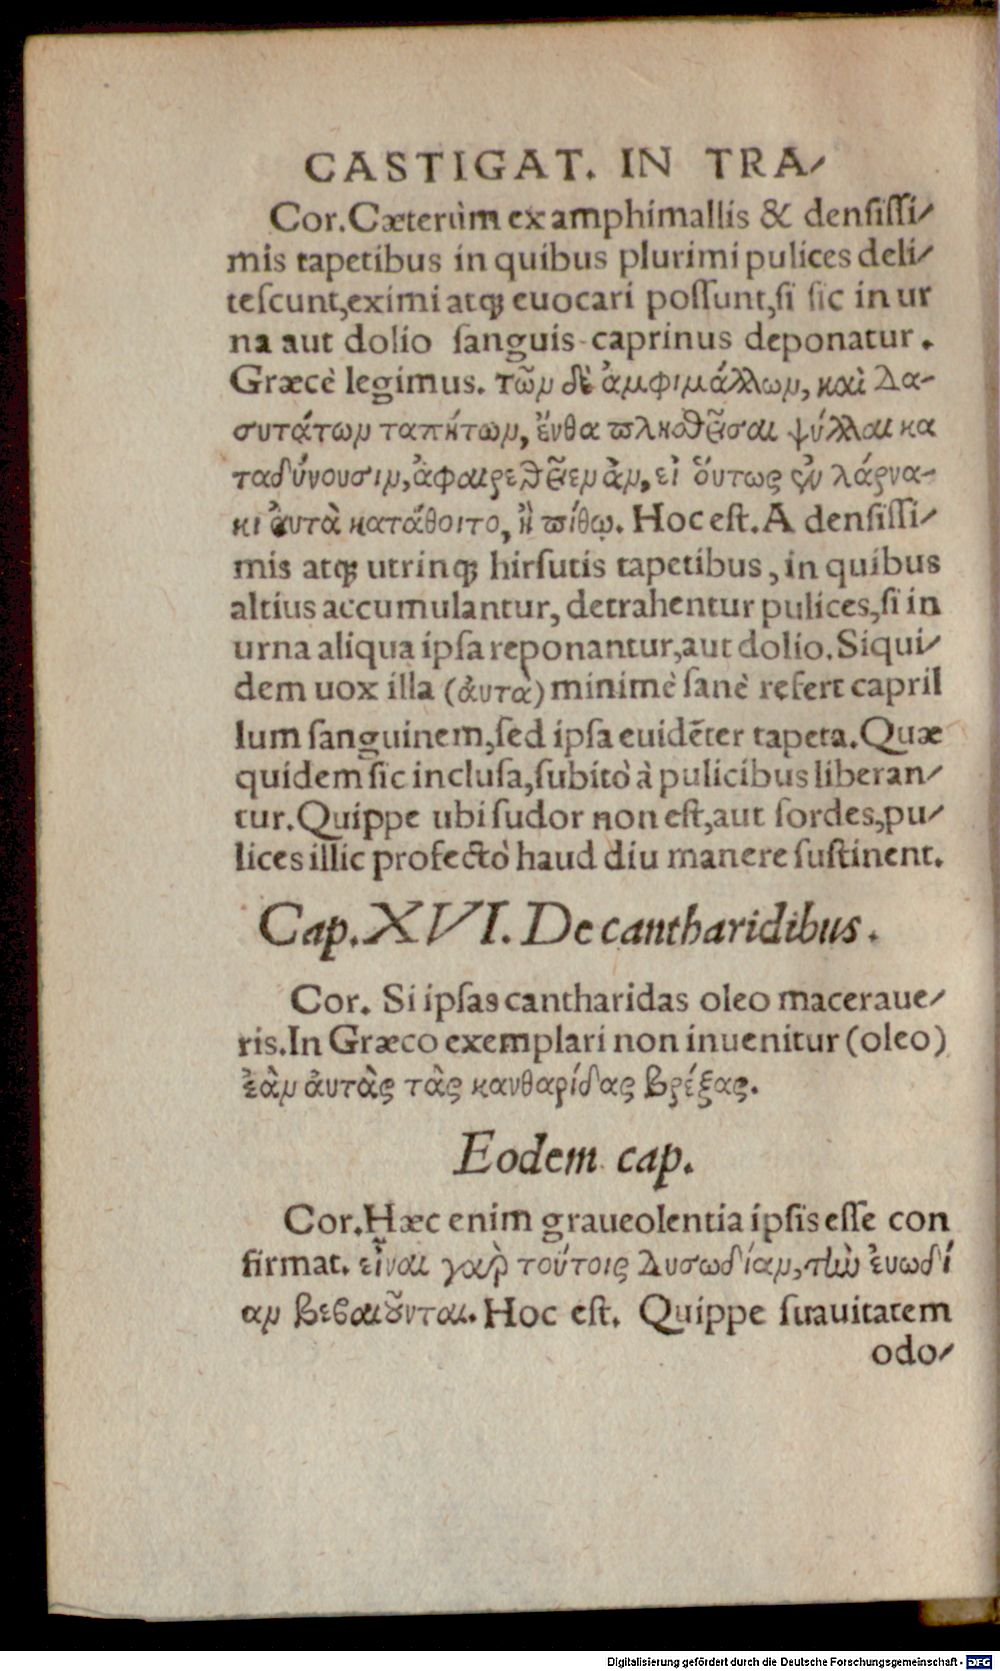 CASTIGAT. IN TRA-
Cor. Cæterùm ex amphimallis & densissi-
mis tapetibus in quibus plurimi pulices deli-
tescunt, eximi atq; euocari possunt, si sic in ur
na aut dolio sanguis caprinus deponatur.
Græcè legimus. τῶν δὲ ἀμφιμάλλων, καὶ λα-
συτάτων ταπήτων, ἔνθα πληθοῦσαι ψύλλαι κα
ταδύνουσιν, ἀφαιρεθεῖεν ἂν, εἰ ὅυτως ἐν λάρνα-
κι ἀυτὰ κατάθοιτο, ἢ πίθῳ. Hoc est. A densissi-
mis atq; utrinq; hirsutis tapetibus, in quibus
altius accumulantur, detrahentur pulices, si in
urna aliqua ipsa reponantur, aut dolio. Siqui-
dem uox illa (ἀυτὰ) minimè sanè refert capril
lum sanguinem, sed ipsa euidẽter tapeta. Quæ
quidem sic inclusa, subitò à pulicibus liberan-
tur. Quippe ubi sudor non est, aut sordes, pu-
lices illic profectò haud diu manere sustinent.
Cap. XVI. De cantharidibus.
Cor. Si ipsas cantharidas oleo maceraue-
ris. In Græco exemplari non inuenitur (oleo)
ἐὰν ἀυτὰς τὰς κανθαρίδας βρέξας.
Eodem cap.
Cor. Hæc enim graueolentia ipsis esse con
firmat. εἶναι γαρ τούτοις δυσωδίαν, τὴν ἐυωδί
αν βεβαιοῦνται. Hoc est. Quippe suauitatem
odo-
Digitalisierung gefördert durch die Deutsche Forschungsgemeinschaft - DFG